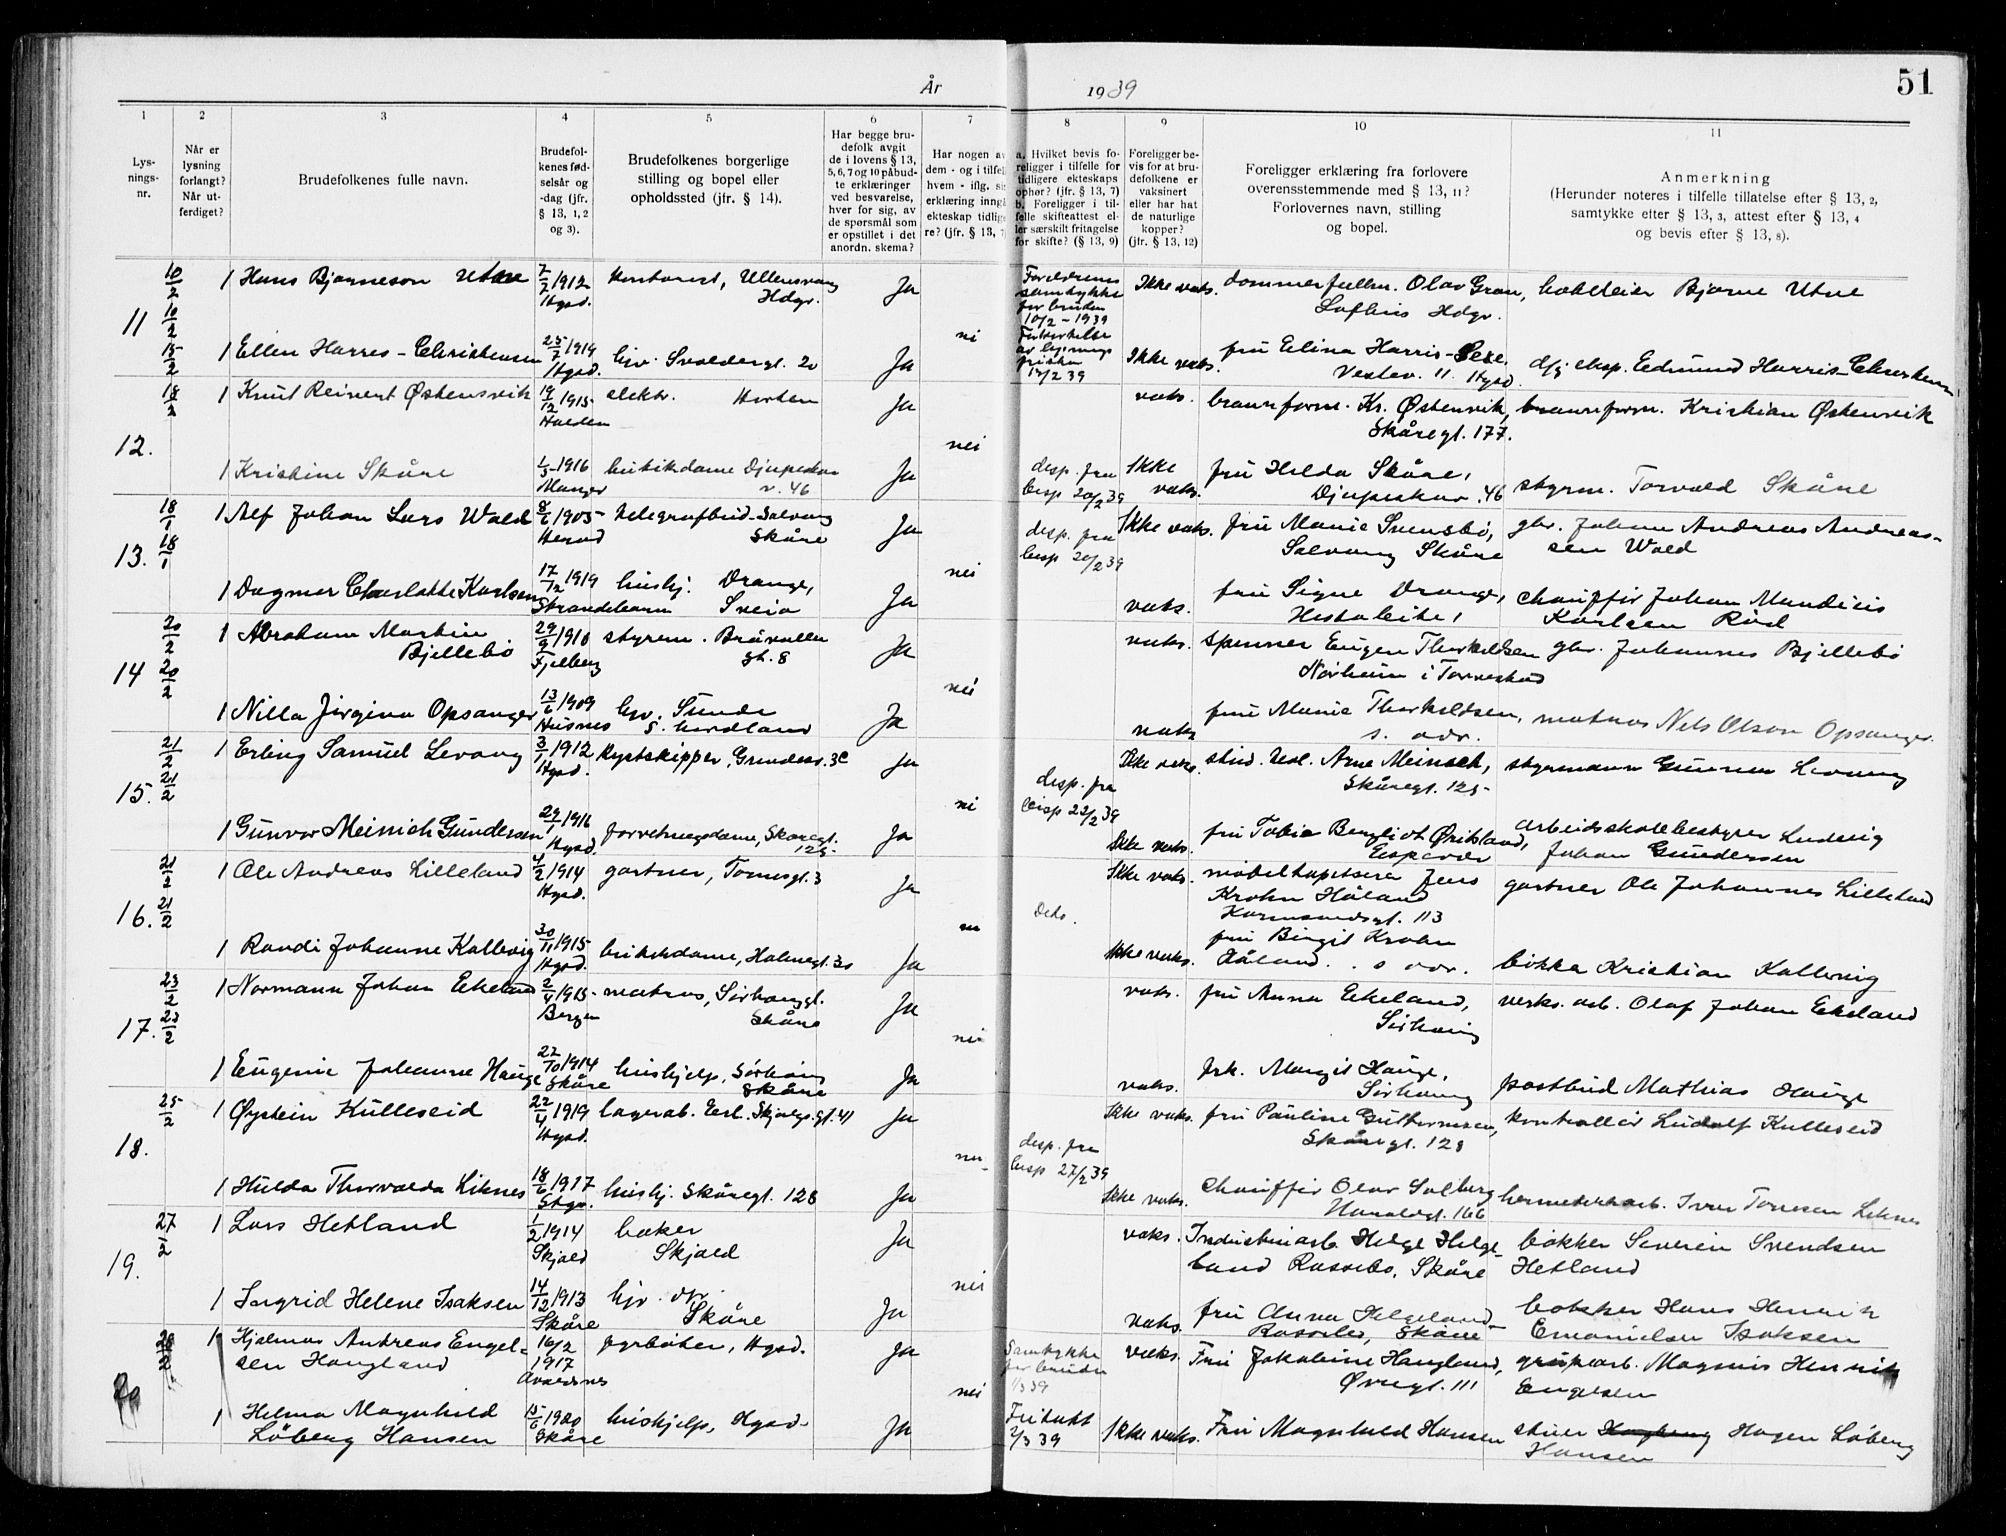 51
År 1939
1 2 3 4 5 6 7 8 9 10 11
Lys-
nings-
nr.
Når er
lysning
forlangt?
Når ut-
ferdiget?
Brudefolkenes fulle navn.
Brudefol-
kenes fød-
selsår og
-dag (jfr.
§ 13, 1, 2
og 3).
Brudefolkenes borgerlige
stilling og bopel eller
opholdssted (jfr. § 14).
Har begge bru-
defolk avgit
de i lovens § 13,
5, 6, 7 og 10 påbud-
te erklæringer
ved besvarelse,
hver for sig, av
de spørsmål som
er opstillet i det
anordn. skema?
Har nogen av
dem - og i tilfel
hvem - iflg. si
erklæring inngå
ekteskap tidlig
re? (jfr. § 13, 7
a. Hvilket bevis fo-
religger i tilfelle for
tidligere ekteskaps
ophør? (jfr. § 13, 7)
b. Foreligger i til-
felle skifteattest el-
ler særskilt fritagelse
for skifte? (§ 13, 9)
Foreligger be-
vis for at bru-
defolkene er
vaksinert
eller har hat
de naturlige
kopper?
(jfr. § 13, 12)
Foreligger erklæring fra forlovere
overensstemmende med § 13, 11?
Forlovernes navn, stilling
og bopel.
Anmerkning
(Herunder noteres i tilfelle tillatelse efter § 13, 2,
samtykke efter § 13, 3, attest efter § 13, 4
og bevis efter § 13, 8).
11 10/2 10/2 1 Hans Bjarneson Utne 7/7 1912 Hgsd. kontorist, Ullensvang Hdgr. Ja
Foreldrenes samtykke for bruden 10/2 - 1939
Ikke vaks. dommerfullm. Olav Gran, Lofthus Hdgr. hotelleier Bjarne Utne
15/2 1 Ellen Harris-Christensen 25/7 1919 Hgsd. hjv. Svoldergt. 20 Ja
Ikke vaks. fru Elina Harris-Sexe Vestev. 11. Hgsd. d/s eksp. Edmund Harris-Christensen
12. 18/2 1 Knut Reinert Østensvik 19/12 1915 Halden elektr. Horten Ja nei
vaks. brannform. Kr. Østensvik, Skåregt. 177. brannform. Kristian Østensvik
1 Kristine Skåre 1/3 1916 Manger butikdame Djupeskar v. 46 Ja
desp. fra bisp 20/2 39 Ikke vaks. fru Hilda Skåre, Djupeskar v. 46 styrm. Torvald Skåre
13. 18/1 18/1 1 Alf Johan Lars Wold 8/6 1905 telegrafbud Solvang Skåre Ja nei
desp. fra bisp 20/2 39 Ikke vaks. fru Marie Svensbø, Solvang Skåre gbr. Johan Andreas Andreas-
sen Wold
1 Dagmar Charlotte Karlsen 17/12 1919 Strandebarm hushj. Drange, Sveio Ja
vaks. fru Signe Drange, chauffør Johan Mandius
Karlsen Rød
14 20/2 20/2 1 Abraham Martin
Bjellebø 29/9 1910 Fjelberg styrm. Bråvalla gt. 8 Ja nei
vaks. spenner Eugen Thorkildsen Norheim i Torvestad gbr. Johannes Bjellebø
1 Nilla Jørgina Opsanger 13/6 1909 Husnes hjv. Sunde S. hordland Ja
vaks fru Marie Thorkildsen, s. adr. matros Nils Olson Opsanger.
15. 21/2 21/2 1 Erling Samuel Levang 3/1 1912 Hgsd. kystskipper, Grindess. 3C Ja
desp. fra bisp 22/2 39 Ikke vaks. stud. real. Arne Meinich, Skåregt. 125 styrmann Gunnar Levang
1 Gunvor Meinich Gundersen 29/1 1916 Hgsd. forretningsdame, Skåregt. 125 Ja
Ikke vaks. fru Tobia Bergliot Øritsland, Espevær arbeidsskolebestyrer Ludvig
Johan Gundersen
16. 21/2 21/2 1 Ole Andreas Lilleland 4/2 1914 Hgsd. gartner, Tonesgt. 3 Ja
Ikke vaks. møbeltapetserer Jens
Krohn Håland
Karmsundsgt. 113 gartner Ole Johannes Lilleland
1 Randi Johanne Kallevig 30/11 1915 Hgsd. butikdame, Halnegt. 30 Ja
Ikke vaks. fru Birgit Krohn
Håland. s adr. bøkker Kristian Kallevig
17. 23/2 23/2 1 Normann Johan Eikeland 2/4 1915 Bergen matros, Sørhauggt. Skåre Ja nei
vaks. fru Anna Eikeland, Sørhaug verks. arb. Olaf Johan Eikeland
1 Eugenie Johanne Hauge 22/10 1914 Skåre hushjelp, Sørhaug Skåre Ja
vaks. frk. Margit Hauge, Sørhaug postbud Mathias Hauge
18. 25/2 1 Øystein Kulleseid 22/4 1919 Hgsd. lagerarb. Erl. Skjalgs.gt. 41 Ja
desp. fra bisp 27/2 39 Ikke vaks. fru Pauline Guttormsen, Skåregt. 128 kontrollør Ludolf Kulleseid
1 Hulda Thorvalda Liknes 18/6 1917 hushj. Skåregt. 128 Ja
Ikke vaks. Chauffør Olav Solberg Haraldgt. 166 hermetikkarb. Iver Tonesen Liknes
19. 27/2 1 Lars Hetland 1/2 1914 Skjold baker Skjold Ja nei
vaks. Industriarb. Helge Helge-
land Rossebø, Skåre bøkker Severin Svendsen
Hetland
1 Ingrid Helene Isaksen 14/12 1913 Skåre hjv. Skåre Ja
vaks. fru Anna Helgeland Rossebø, Skåre bøkker Hans Henrik
Emanuelsen Isaksen
20 28/2 1 Hjalmar Andreas Engel-
sen Haugland 16/2 1917 Avaldsnes fyrbøter, Hgsd. Ja nei
Samtykke for bruden 1/3 39 vaks. Fru Jakobine Haugland, Øvregt. 111 grubearb. Magnus Henrik
Engelsen
1 Helma Magnhild
Løberg Hansen 15/6 1920 Skåre hushjelp, Hgsd. Ja
Fritatt 2/3 39 Ikke vaks. Fru Magnhild Hansen stuer Hagen Løberg
Hansen